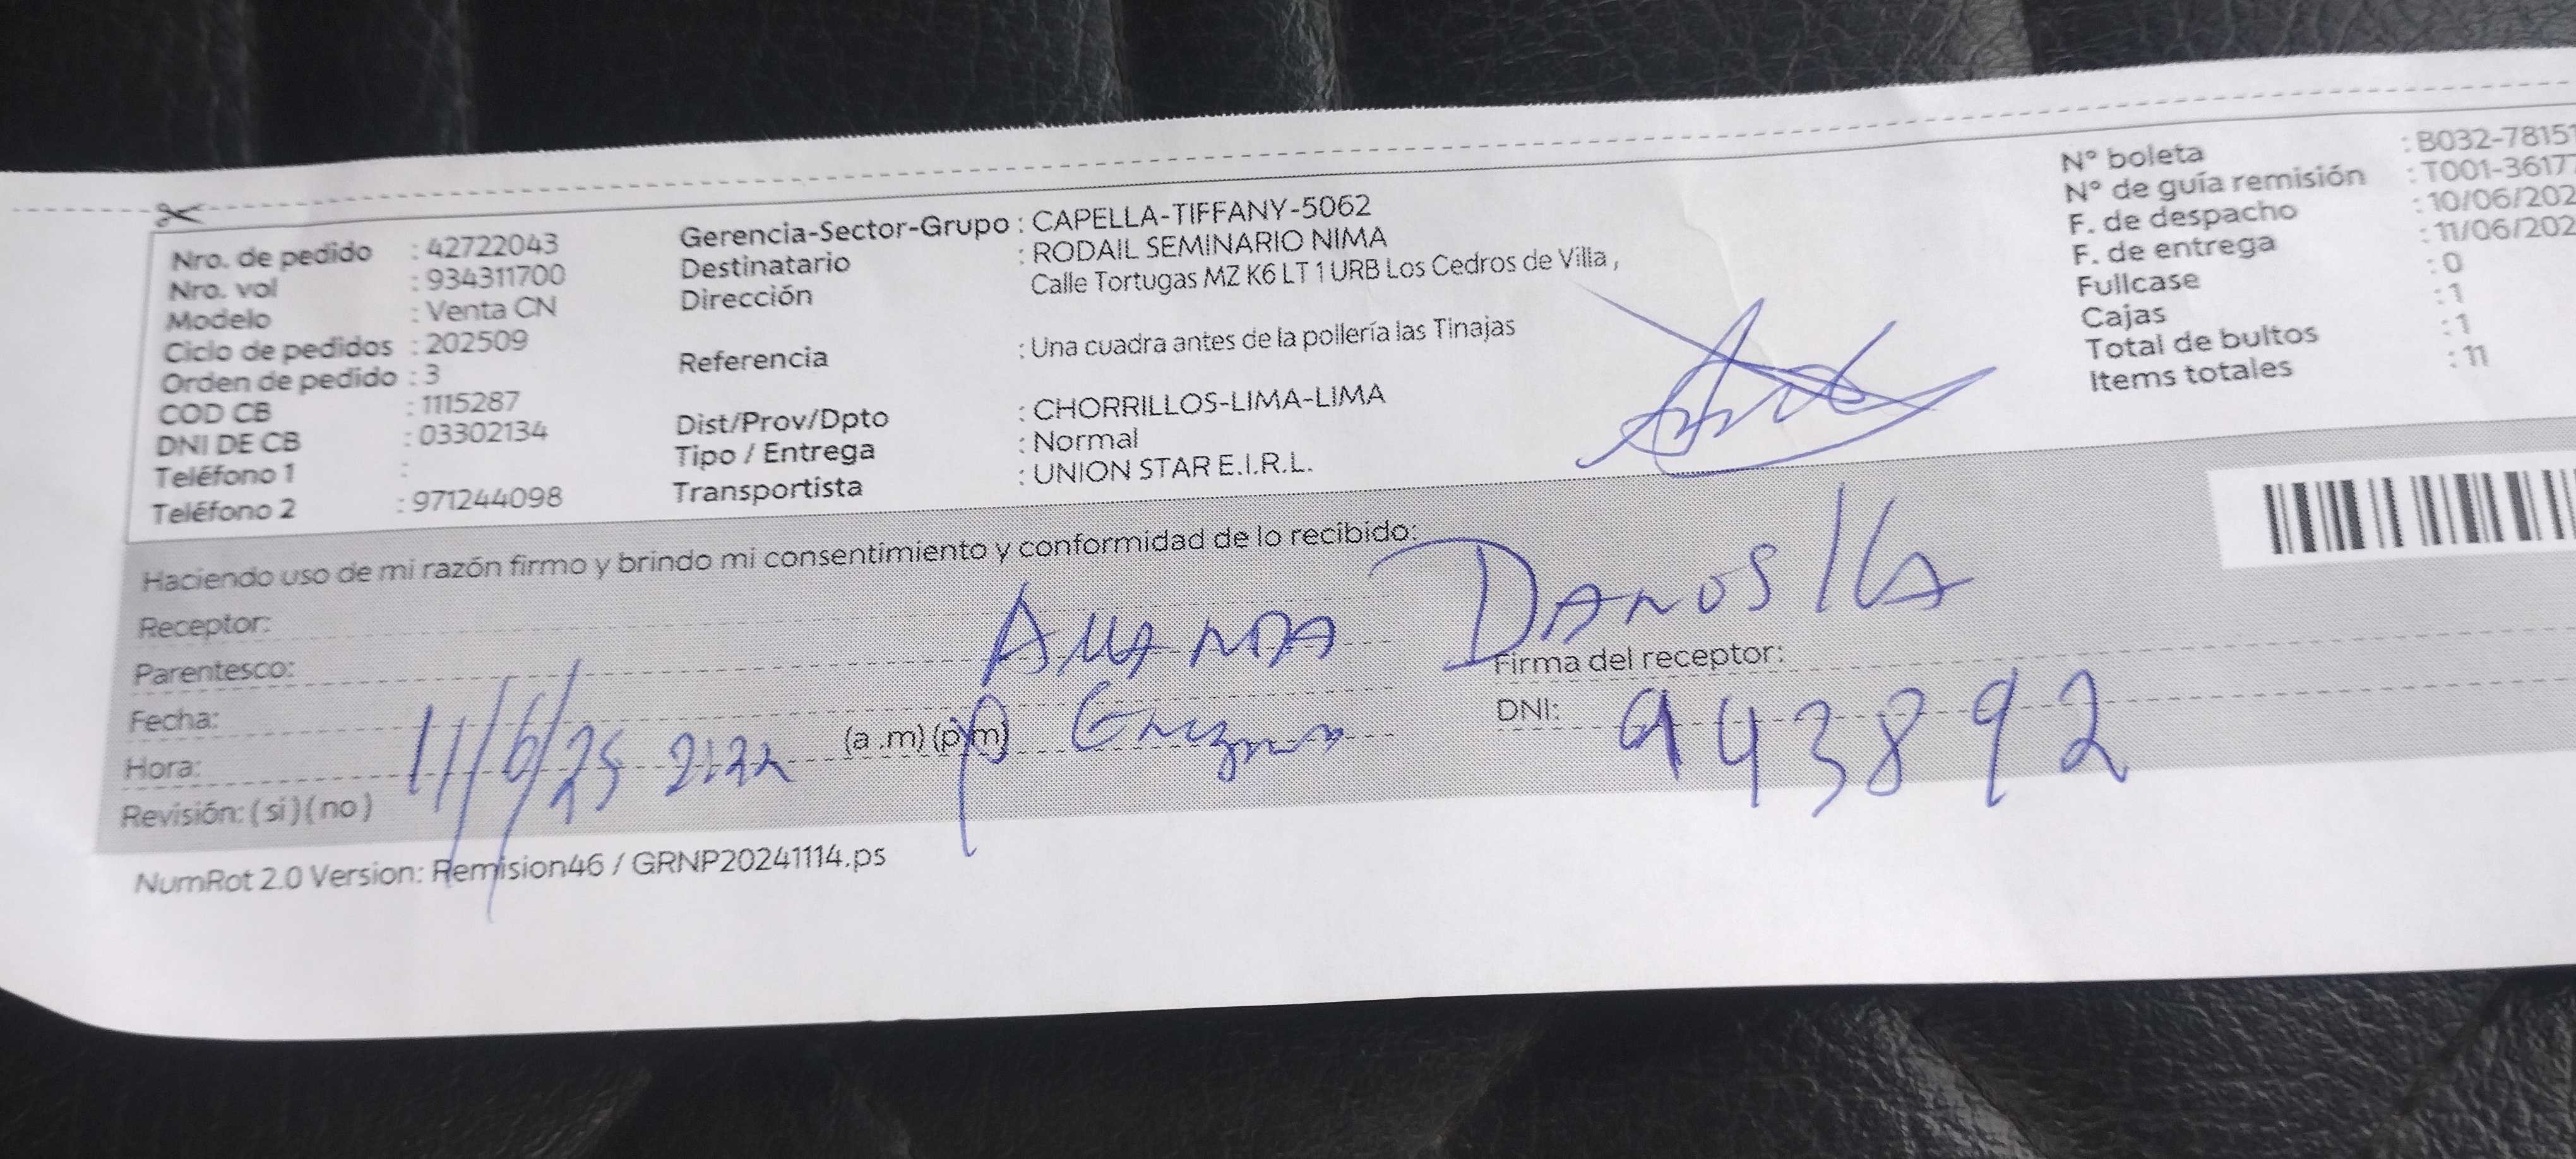 Nro. de pedido : 42722043
Nro. vol : 934311700
Modelo : Venta CN
Ciclo de pedidos : 202509
Orden de pedido : 3
COD CB : 1115287
DNI DE CB : 03302134
Teléfono 1 :
Teléfono 2 : 971244098
Gerencia-Sector-Grupo : CAPELLA-TIFFANY-5062
Destinatario : RODAIL SEMINARIO NIMA
Dirección Calle Tortugas MZ K6 LT 1 URB Los Cedros de Villa ,
Referencia : Una cuadra antes de la pollería las Tinajas
Dist/Prov/Dpto : CHORRILLOS-LIMA-LIMA
Tipo / Entrega : Normal
Transportista : UNION STAR E.I.R.L.
N° boleta : B032-78151
N° de guía remisión : T001-3617
F. de despacho : 10/06/202
F. de entrega : 11/06/202
Fullcase : 0
Cajas : 1
Total de bultos : 1
Items totales : 11
Haciendo uso de mi razón firmo y brindo mi consentimiento y conformidad de lo recibido:
Receptor:
Parentesco: AMANDA
Firma del receptor:
Fecha: 11/6/25
Hora: (a .m) (p.m)
DNI: 943892
Revisión: ( si ) ( no )
NumRot 2.0 Version: Remision46 / GRNP20241114.ps